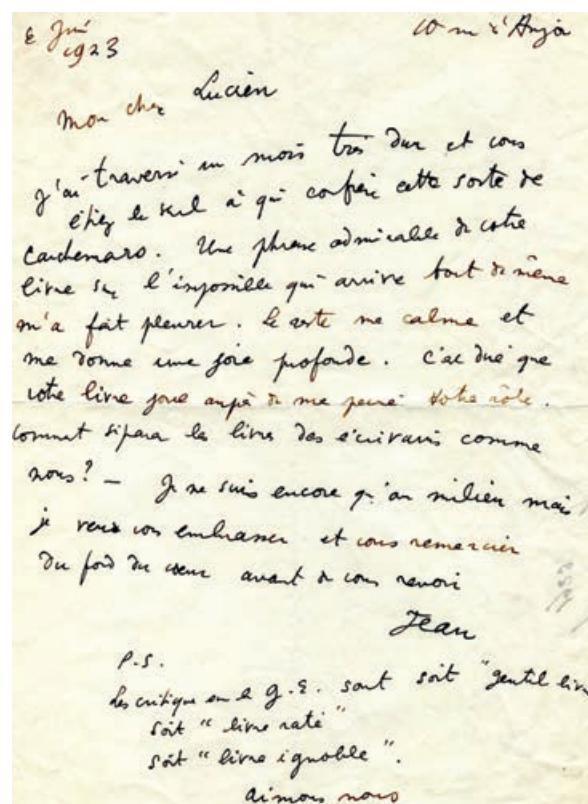 2 Juin 10 rue d'Anjou
1923
Mon cher Lucien
J'ai traversé un mois très dur et vous
étiez le seul à qui confier cette sorte de
cauchemars. Une phrase admirable de votre
livre sur l'impossible qui arrive tout de même
m'a fait pleurer. Le reste me calme et
me donne une joie profonde. C'est dire que
votre livre joue auprès de moi votre rôle.
Comment séparer les livres des écrivains comme
nous? — Je ne suis encore qu'au milieu mais
je veux vous embrasser et vous remercier
du fond du cœur avant de vous revoir
Jean
P.S.
Les critiques sur le G.E. sont soit "gentil livre
soit "livre raté"
soit "livre ignoble".
aimons nous